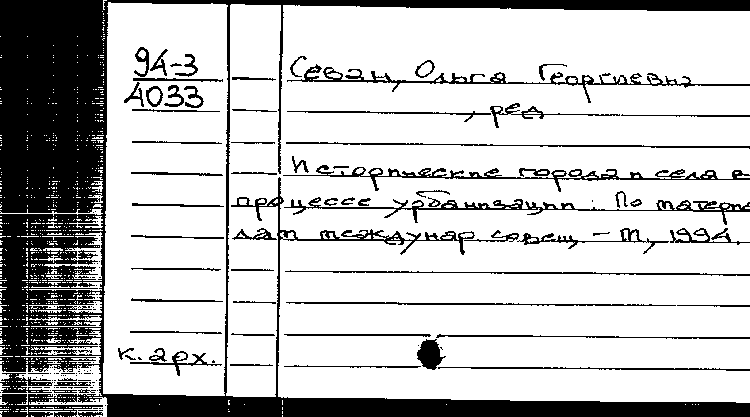 94-3
4033
Севан, Ольга Георгиевна
, ред
Исторические города и села в
процессе урбанизации: По материа
лам междунар. совещ. - М., 1994.
к. арх.